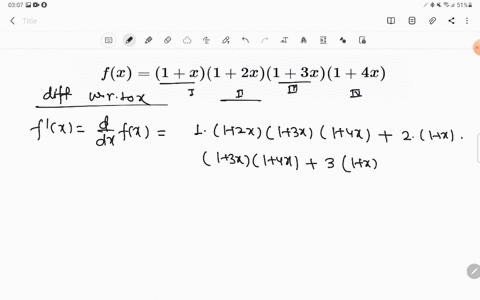 03:07
51%
Title
f(x) = (1 + x)(1 + 2x)(1 + 3x)(1 + 4x)
I II III IV
diff w.r.to x
f'(x) = d/dx f(x) = 1·(1+2x)(1+3x)(1+4x) + 2·(1+x)·
(1+3x)(1+4x) + 3(1+x)